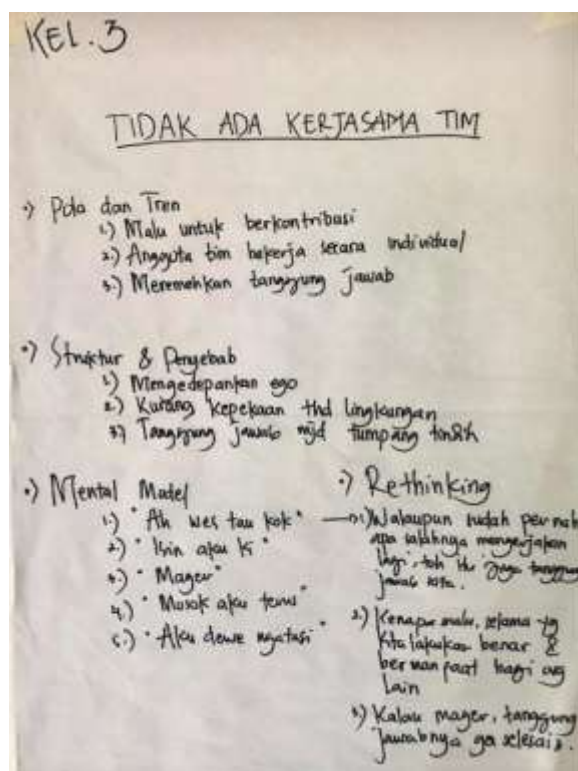 KEL. 3
TIDAK ADA KERJASAMA TIM
•) Pola dan Tren
1.) Malu untuk berkontribusi
2.) Anggota tim bekerja secara individual
3.) Meremehkan tanggung jawab
•) Struktur & Penyebab
1) Mengedepankan ego
2) Kurang kepekaan thd lingkungan
3) Tanggung jawab mjd tumpang tindih
•) Mental Model
1.) "Ah wes tau kok"
2.) "Isin aku ki"
3.) "Mager"
4.) "Mosok aku terus"
5.) "Aku dewe ngatasi"
•) Rethinking
1) Walaupun sudah pernah
apa salahnya mengerjakan
lagi, toh itu juga tanggung
jawab kita.
2.) Kenapa malu, selama yg
kita lakukan benar &
bermanfaat bagi org
lain
3) Kalau mager, tanggung
jawabnya ga selesai2.